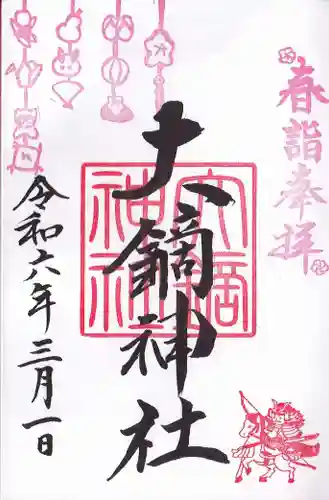 春詣奉拝
大鏑神社
令和六年三月一日